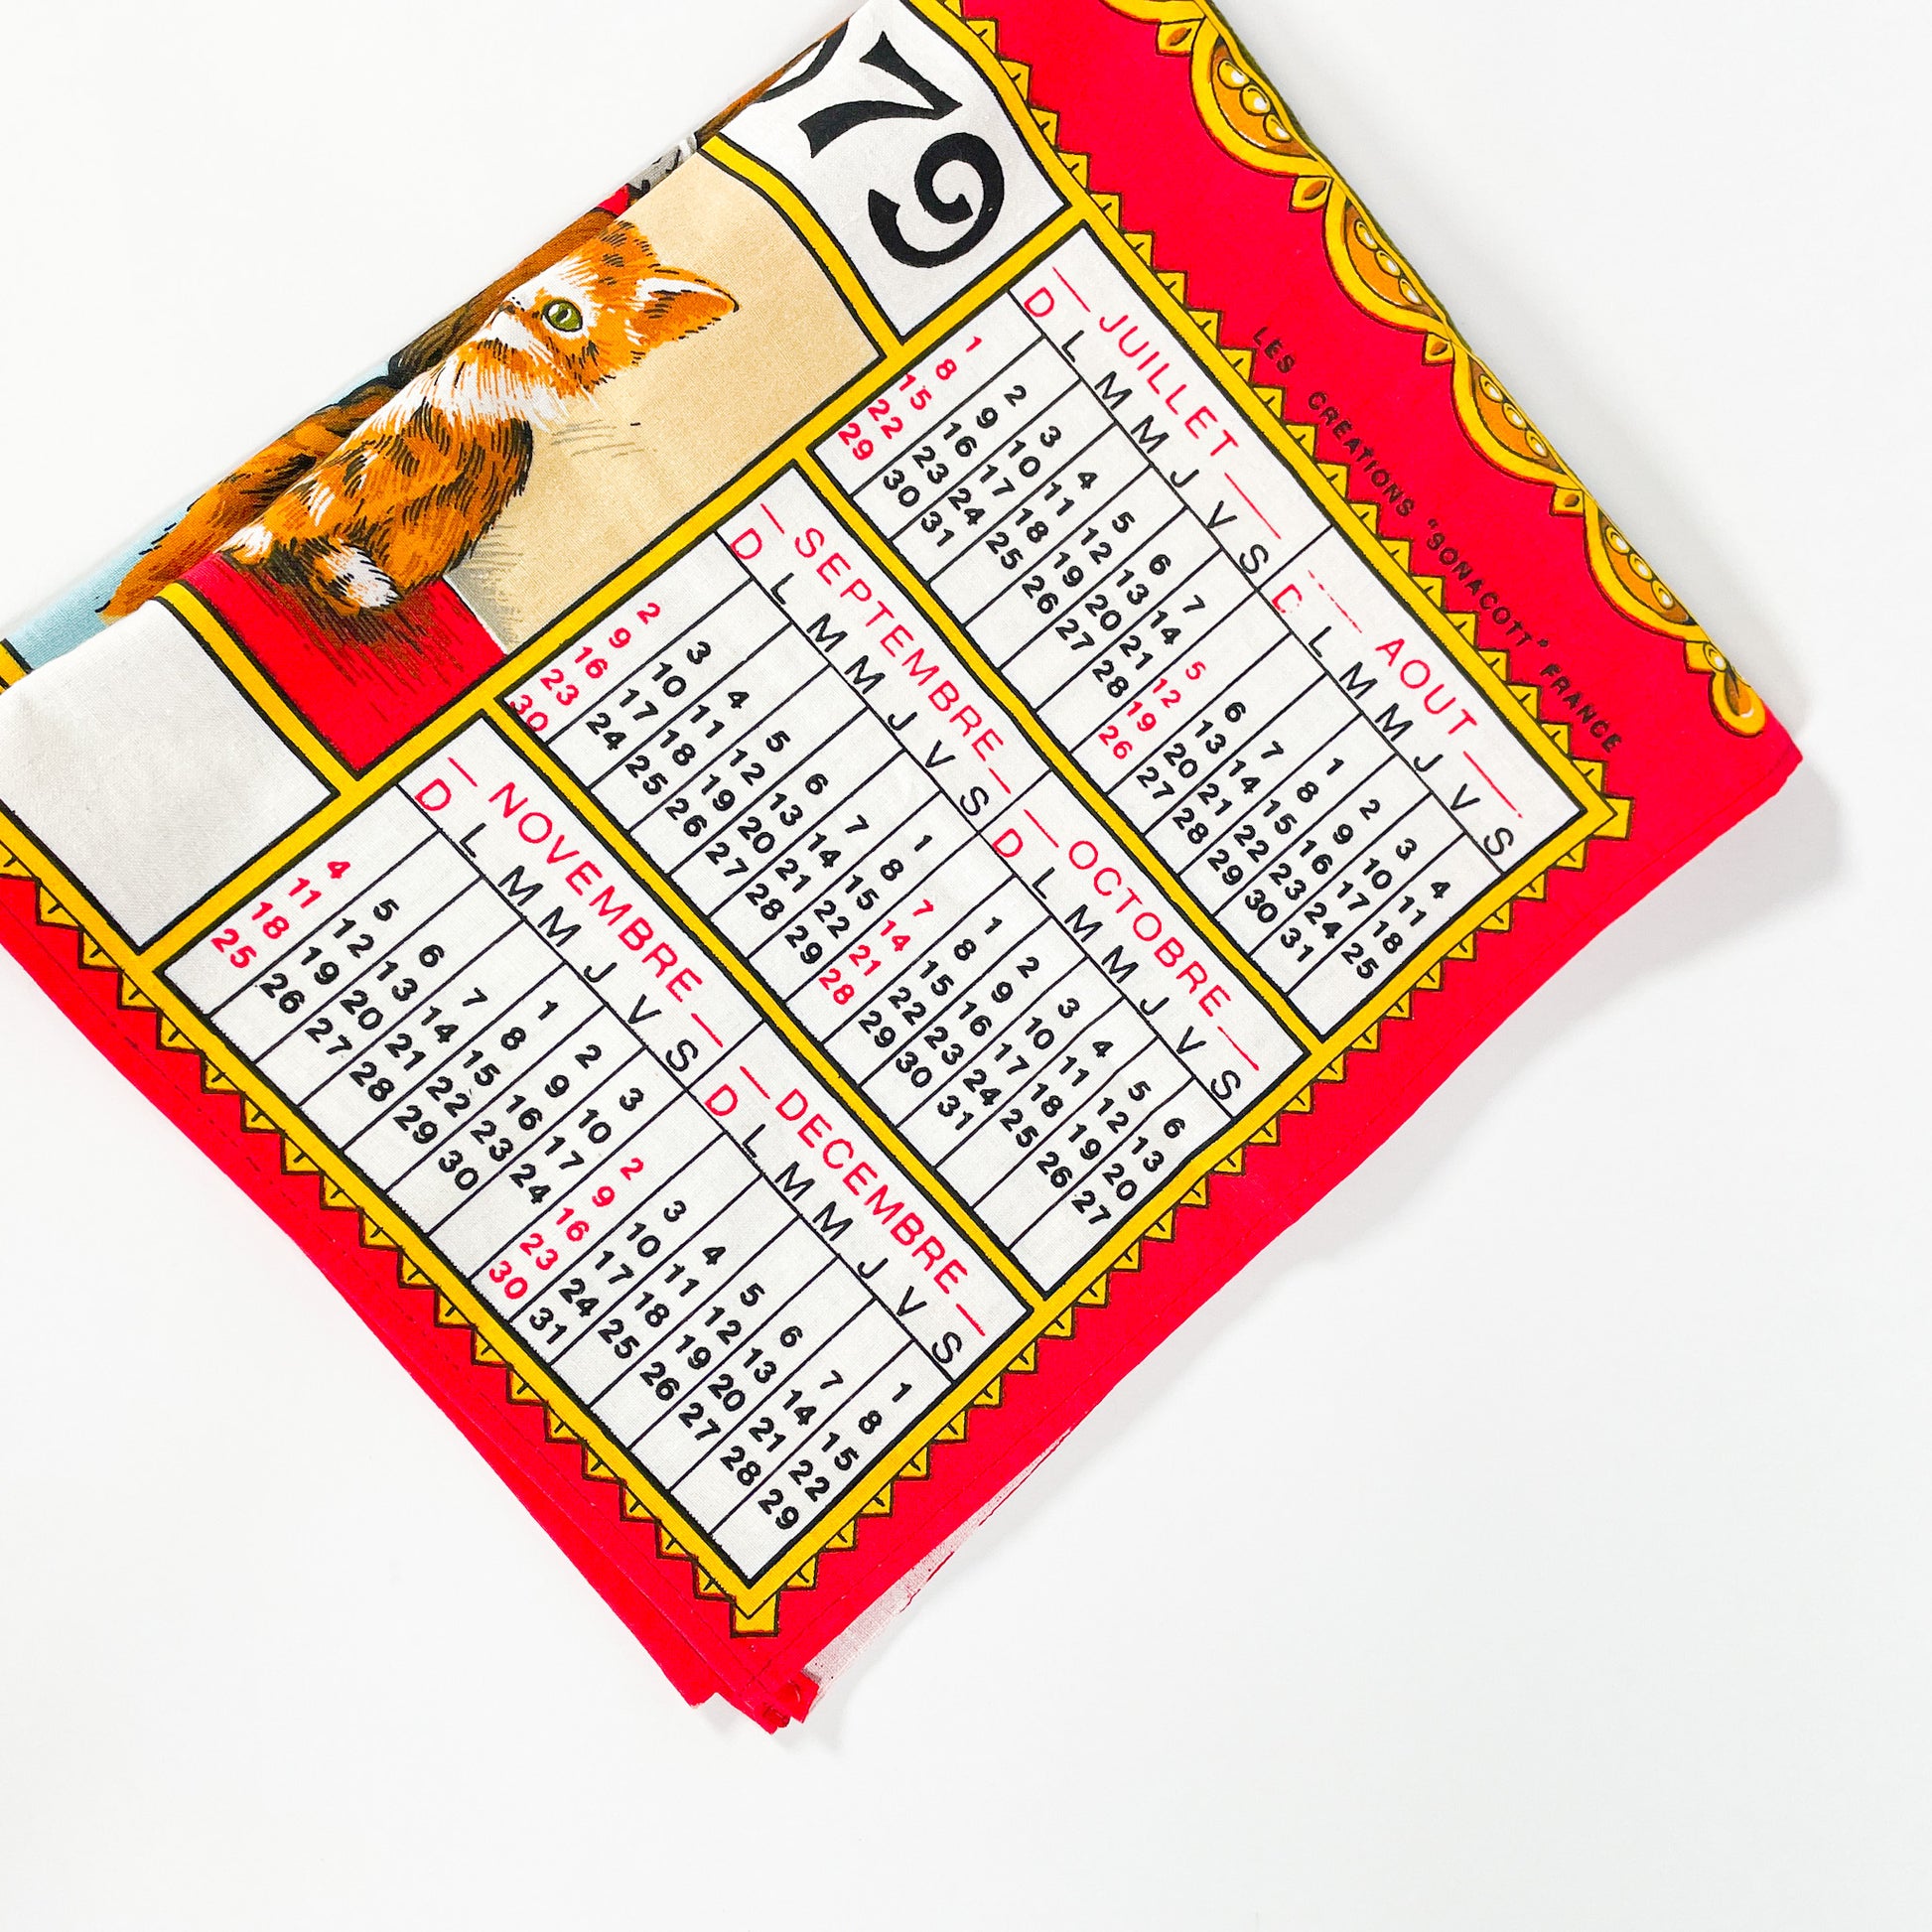 79
LES CREATIONS "SONACOTT" FRANCE
JUILLET
D L M M J V S
1 2 3 4 5 6 7
8 9 10 11 12 13 14
15 16 17 18 19 20 21
22 23 24 25 26 27 28
29 30 31
AOUT
D L M M J V S
1 2 3 4
5 6 7 8 9 10 11
12 13 14 15 16 17 18
19 20 21 22 23 24 25
26 27 28 29 30 31
SEPTEMBRE
D L M M J V S
1
2 3 4 5 6 7 8
9 10 11 12 13 14 15
16 17 18 19 20 21 22
23 24 25 26 27 28 29
30
OCTOBRE
D L M M J V S
1 2 3 4 5 6
7 8 9 10 11 12 13
14 15 16 17 18 19 20
21 22 23 24 25 26 27
28 29 30 31
NOVEMBRE
D L M M J V S
1 2 3
4 5 6 7 8 9 10
11 12 13 14 15 16 17
18 19 20 21 22 23 24
25 26 27 28 29 30
DECEMBRE
D L M M J V S
1
2 3 4 5 6 7 8
9 10 11 12 13 14 15
16 17 18 19 20 21 22
23 24 25 26 27 28 29
30 31